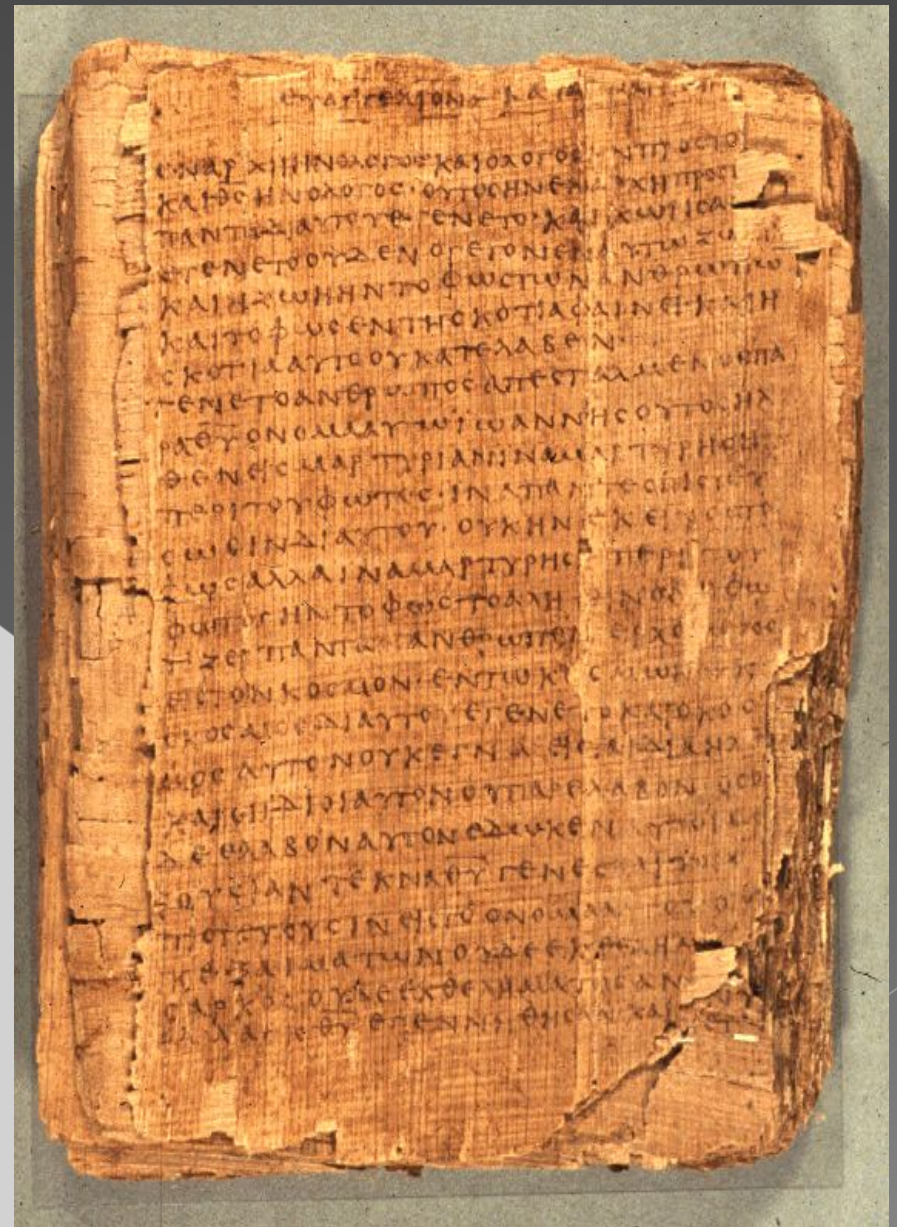 ΕΥΑΓΓΕΛΙΟΝ ΚΑΤΑ
ΕΝΑΡΧΗΗΝΟΛΟΓΟϹΚΑΙΟΛΟΓΟϹΗΝΠΡΟϹΤΟ
ΚΑΙΘ̅Ϲ̅ΗΝΟΛΟΓΟϹ·ΟΥΤΟϹΗΝΕΝΑΡΧΗΠΡΟϹΤ
ΠΑΝΤΑΔΙΑΥΤΟΥΕΓΕΝΕΤΟ·ΚΑΙΧΩΡΙϹΑ
ΕΓΕΝΕΤΟΟΥΔΕΝΟΓΕΓΟΝΕΝΕΝΑΥΤΩΖΩ
ΚΑΙΗΖΩΗΗΝΤΟΦΩϹΤΩΝΑΝΘΡΩΠΩ
ΚΑΙΤΟΦΩϹΕΝΤΗϹΚΟΤΙΑΦΑΙΝΕΙ·ΚΑΙΗ
ϹΚΟΤΙΑΑΥΤΟΟΥΚΑΤΕΛΑΒΕΝ·
ΕΓΕΝΕΤΟΑΝΘΡΩΠΟϹΑΠΕϹΤΑΛΜΕΝΟϹΠΑ
ΡΑΘ̅Υ̅ΟΝΟΜΑΑΥΤΩΪΩΑΝΝΗϹΟΥΤΟϹΗΛ
ΘΕΝΕΙϹΜΑΡΤΥΡΙΑΝΙΝΑΜΑΡΤΥΡΗϹΗ
ΠΕΡΙΤΟΥΦΩΤΟϹ·ΙΝΑΠΑΝΤΕϹΠΙϹΤΕΥ
ϹΩϹΙΝΔΙΑΥΤΟΥ·ΟΥΚΗΝΕΚΕΙΝΟϹΤΟ
ΦΩϹΑΛΛΑΙΝΑΜΑΡΤΥΡΗϹΗΠΕΡΙΤΟΥ
ΦΩΤΟϹΗΝΤΟΦΩϹΤΟΑΛΗΘΙΝΟΝΟΦΩ
ΤΙΖΕΙΠΑΝΤΑΑΝΘΡΩΠΟΝΕΡΧΟΜΕΝΟ
ΕΙϹΤΟΝΚΟϹΜΟΝ·ΕΝΤΩΚΟϹΜΩΗΝΚΑΙ
ΟΚΟϹΜΟϹΔΙΑΥΤΟΥΕΓΕΝΕΤΟΚΑΙΟΚΟϹ
ΜΟϹΑΥΤΟΝΟΥΚΕΓΝΩΕΙϹΤΑΙΔΙΑΗΛ
ΚΑΙΟΙΪΔΙΟΙΑΥΤΟΝΟΥΠΑΡΕΛΑΒΟΝ·ΟϹΟΙ
ΔΕΕΛΑΒΟΝΑΥΤΟΝΕΔΩΚΕΝΑΥΤΟΙϹΕ
ΞΟΥϹΙΑΝΤΕΚΝΑΘ̅Υ̅ΓΕΝΕϹΘΑΙΤΟΙϹ
ΠΙϹΤΕΥΟΥϹΙΝΕΙϹΤΟΟΝΟΜΑΑΥΤΟΥΟΙΟΥ
ΚΕΞΑΙΜΑΤΩΝΟΥΔΕΕΚΘΕΛΗΜΑ
ϹΑΡΚΟϹΟΥΔΕΕΚΘΕΛΗΜΑΤΟϹΑΝ
ΑΛΛΑΕΚΘ̅Υ̅ΕΓΕΝΝΗΘΗϹΑΝΚΑΙ